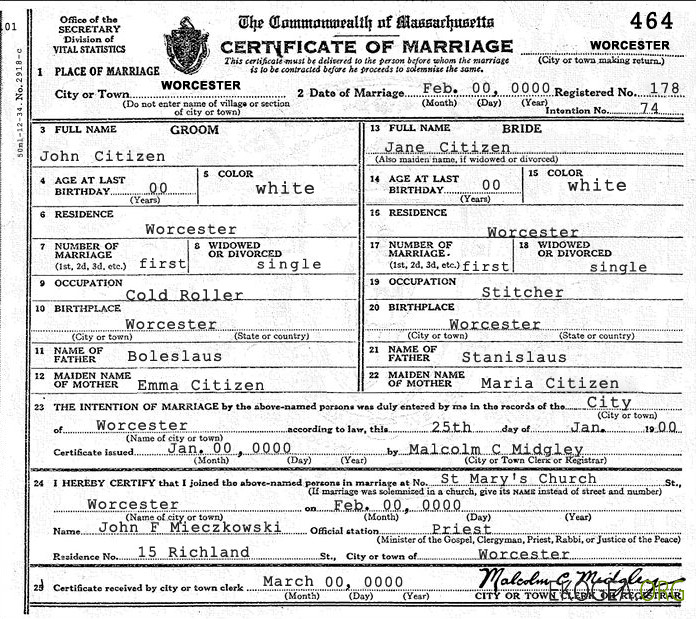 Office of the
SECRETARY
Division of
VITAL STATISTICS
The Commonwealth of Massachusetts
464
CERTIFICATE OF MARRIAGE
This certificate must be delivered to the person before whom the marriage
is to be contracted before he proceeds to solemnize the same.
WORCESTER
(City or town making return.)
01
50ml-12-34. No. 2918-c
1 PLACE OF MARRIAGE
WORCESTER
City or Town
(Do not enter name of village or section
of city or town)
2 Date of Marriage Feb. 00, 0000
(Month) (Day) (Year)
Registered No. 178
Intention No. 74
3 FULL NAME GROOM
John Citizen
13 FULL NAME BRIDE
Jane Citizen
(Also maiden name, if widowed or divorced)
4 AGE AT LAST
BIRTHDAY 00
(Years)
5 COLOR
white
14 AGE AT LAST
BIRTHDAY 00
(Years)
15 COLOR
white
6 RESIDENCE
Worcester
16 RESIDENCE
Worcester
7 NUMBER OF
MARRIAGE
(1st, 2d, 3d, etc.) first
8 WIDOWED
OR DIVORCED
single
17 NUMBER OF
MARRIAGE.
(1st, 2d, 3d, etc.) first
18 WIDOWED
OR DIVORCED
single
9 OCCUPATION
Cold Roller
19 OCCUPATION
Stitcher
10 BIRTHPLACE
Worcester
(City or town) (State or country)
20 BIRTHPLACE
Worcester
(City or town) (State or country)
11 NAME OF
FATHER Boleslaus
21 NAME OF
FATHER Stanislaus
12 MAIDEN NAME
OF MOTHER Emma Citizen
22 MAIDEN NAME
OF MOTHER Maria Citizen
23 THE INTENTION OF MARRIAGE by the above-named persons was duly entered by me in the records of the City
(City or town)
of Worcester according to law, this 25th day of Jan. 1900
(Name of city or town)
Certificate issued Jan. 00, 0000 by Malcolm C Midgley
(Month) (Day) (Year) (City or Town Clerk or Registrar)
24 I HEREBY CERTIFY that I joined the above-named persons in marriage at No. St Mary's Church St.,
(If marriage was solemnized in a church, give its NAME instead of street and number)
Worcester on Feb. 00, 0000
(Name of city or town) (Month) (Day) (Year)
Name John F Mieczkowski Official station Priest
(Minister of the Gospel, Clergyman, Priest, Rabbi, or Justice of the Peace)
Residence No. 15 Richland St., City or town of Worcester
25 Certificate received by city or town clerk March 00, 0000
(Month) (Day) (Year)
Malcolm C. Midgley
CITY OR TOWN CLERK OR REGISTRAR
EKOGEA.ORG